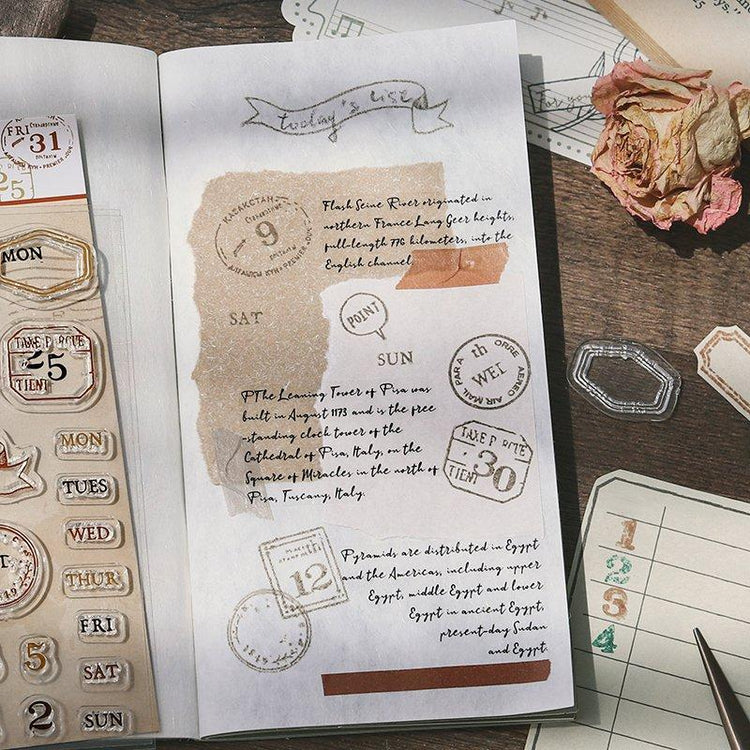 FRI
31
25
MON
TAKE P
25
TIENT
MON
TUES
WED
THUR
FRI
SAT
SUN
5
2
today's list
КАЗАКСТАН
9
Flash Seine River originated in
northern France Lang Geer heights,
full-length 776 kilometers, into the
English channel
SAT
POINT
SUN
th
WED
PAR AVION
AEREO
AIR MAIL
PThe Leaning Tower of Pisa was
built in August 1173 and is the free
-standing clock tower of the
Cathedral of Pisa, Italy, on the
Square of Miracles in the north of
Pisa, Tuscany, Italy.
TAKE P
30
TIENT
th
12
Pyramids are distributed in Egypt
and the Americas, including upper
Egypt, middle Egypt and lower
Egypt in ancient Egypt,
present-day Sudan
and Egypt.
For you
1
2
3
4